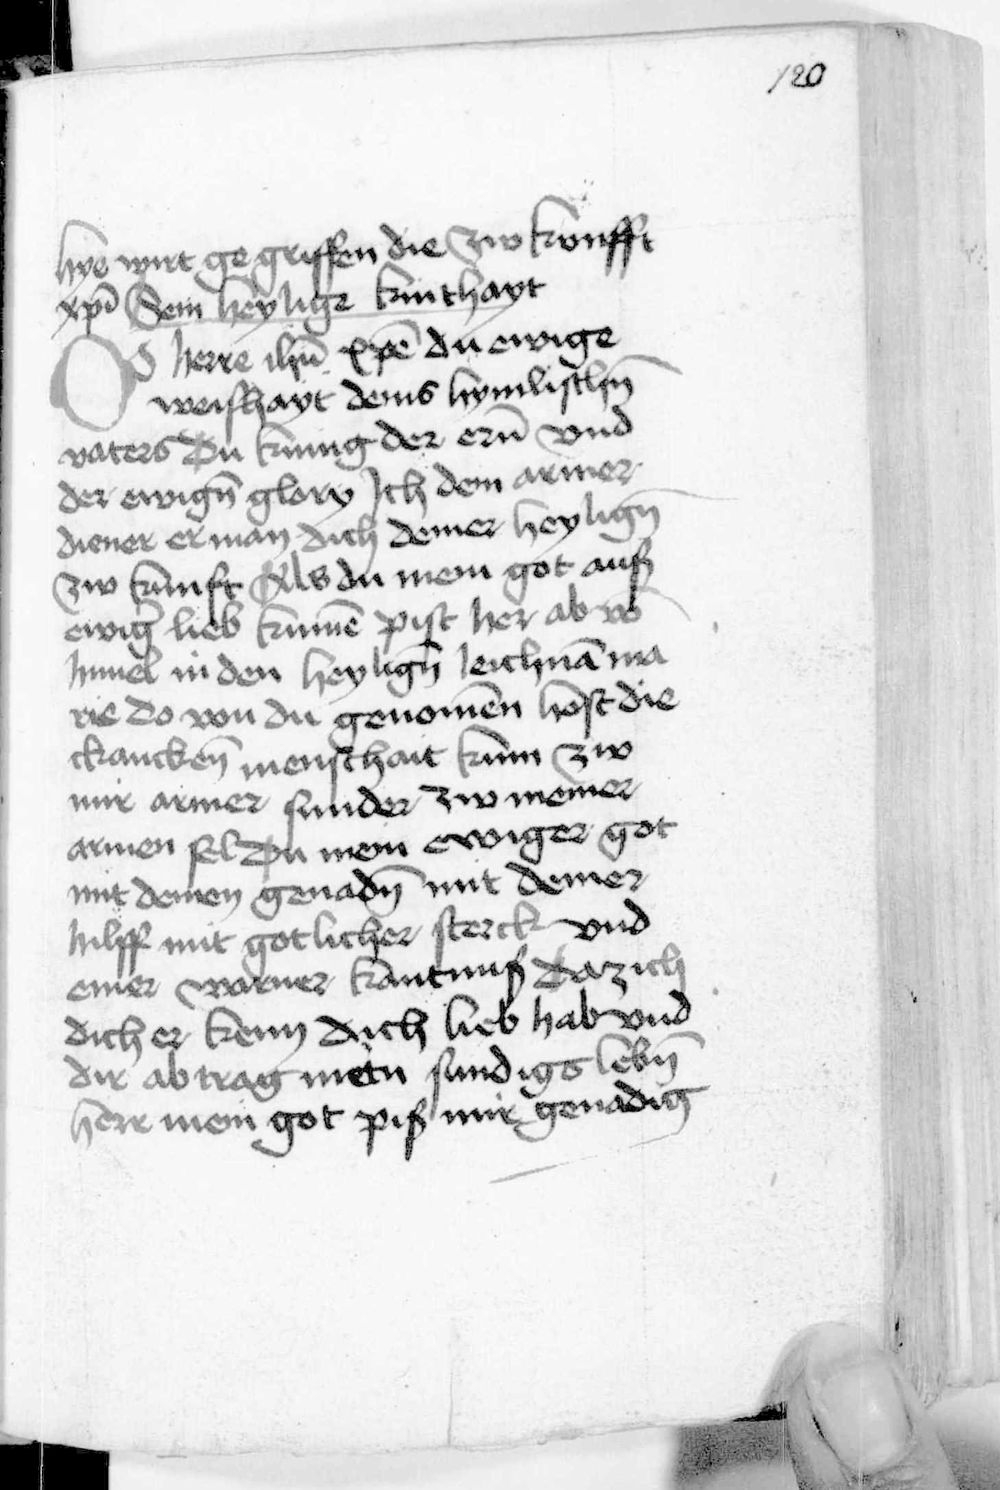 120
hye wirt ge griffen die zw kunfft
xpi Sein heylige kinthayt
O herre ihū xpē du ewige
weishayt deins hymlischn̄
vaters Du kunig der ern̄ vnd
der ewign̄ glory Ich dein armer
diener erman dich deiner heylign̄
zw kunft Als du mein got auß
ewigr lieb kumē pist her ab vō
himel in den heylign̄ leichnā ma
rie do von du genomēn host die
krancken̄ menschait kum zw
mir armer sunder zw meiner
armen sel Du mein ewiger got
mit deinen genadn̄ mit deiner
hilff mit gotlicher sterck vnd
einer warner kantnuß Daz ich
dich er kenn dich lieb hab vnd
dir ab trag mein sundigs lebn̄
herr mein got piß mir genadig